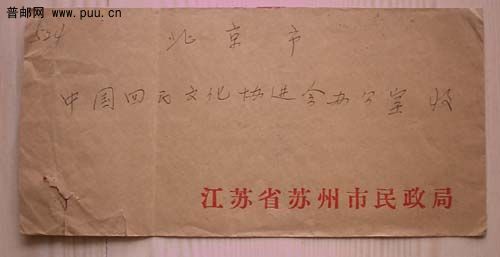 普邮网 www.puu.cn
524
北京市
中国回民文化协进会办公室 收
江苏省苏州市民政局